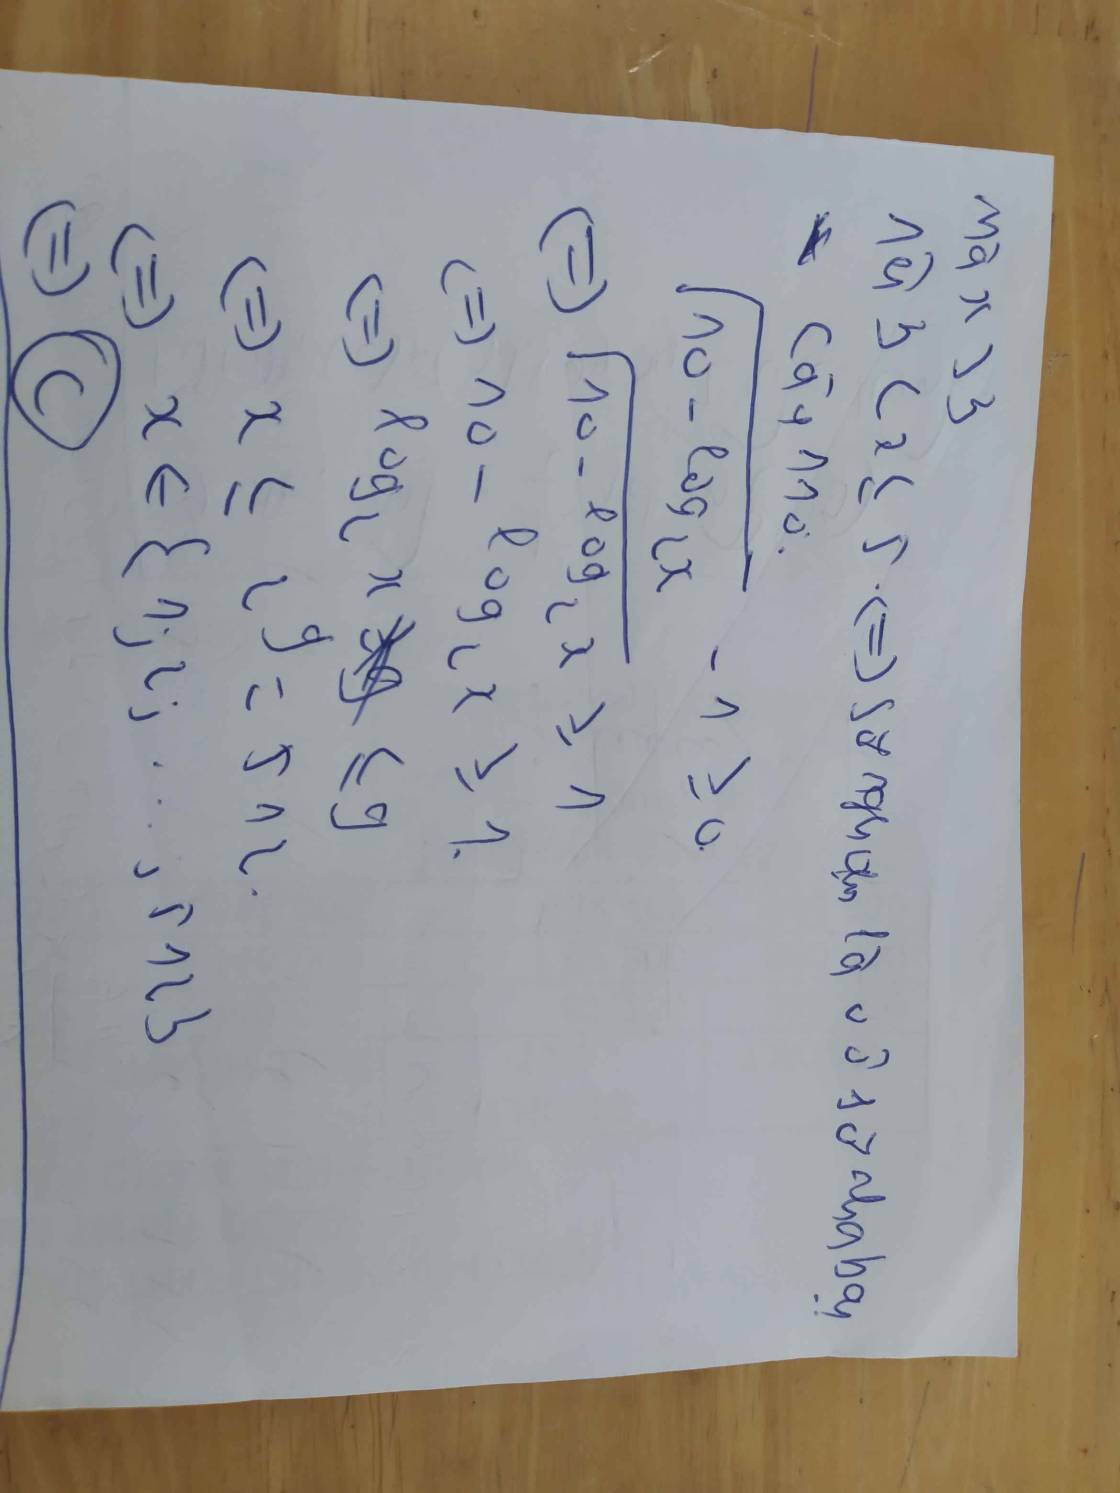 mà x > 3
nên 3 < x ≤ 5. (=) Số nghiệm là
Câu 110.
√(10 - log₂x) - 1 ≥ 0.
(=) √(10 - log₂x) ≥ 1
(=) 10 - log₂x ≥ 1.
(=) log₂x ≤ 9
(=) x ≤ 2⁹ = 512.
(=) x ∈ {1; 2; ..., 512}
(=) C